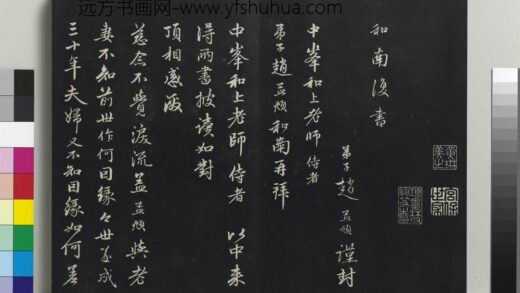 远方书画网-www.yfshuhua.com
和南復書
中峯和上老師 侍者
弟子趙孟頫謹封
弟子趙孟頫和南再拜
中峯和上老師 侍者 以中来
得兩書披读如對
頂相感激
慈念不覺淚流盖孟頫與老
妻不知前世作何因緣今世遂成
三十年夫婦又不知因緣如何差